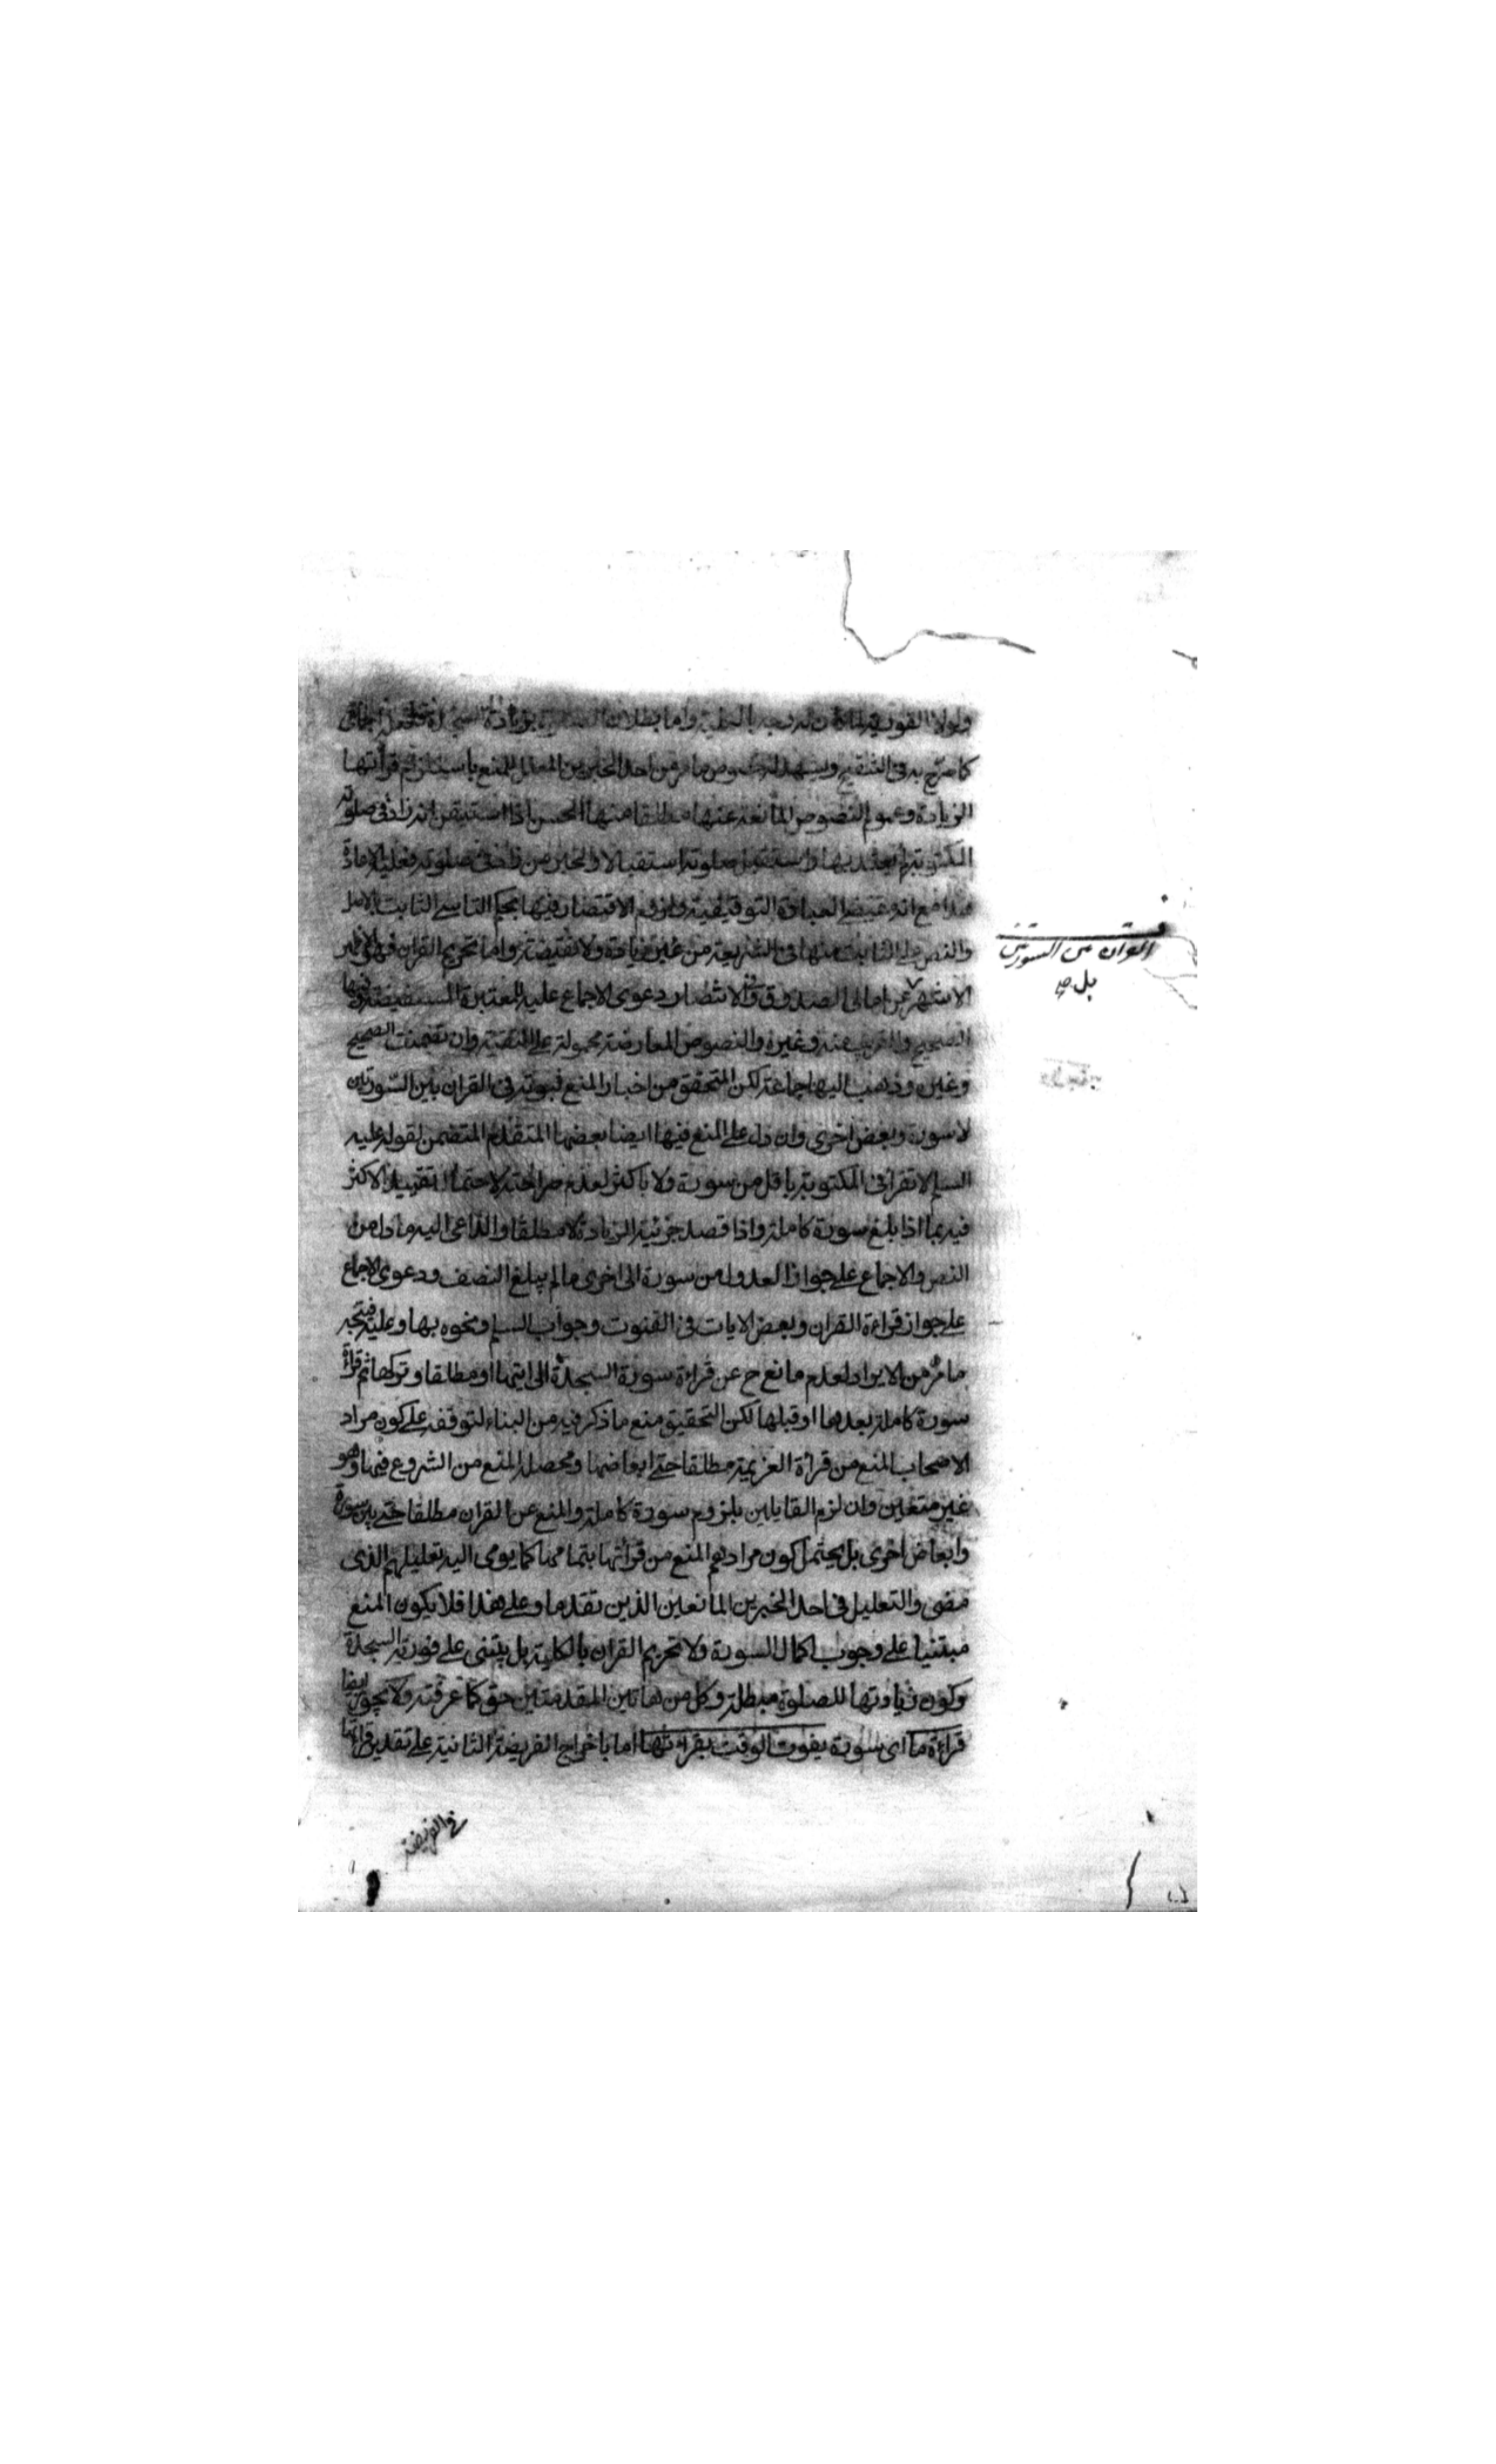 ولولا الفورية لما كان له وجه بالكلية واما بطلان بزيادة السجدة
كما صرح به في التنقيح ويشهد له خصوص ما مر من احد الخبرين المعلل للمنع باستلزام قرائتها
الزيادة وعموم النصوص المانعة عنها مطلقا منها الحسن اذا استيقن انه زاد في صلوته
المكتوبة لم يعتد بها واستقبل صلوته استقبالا والخبر من زاد في صلوته فعليه الاعادة
هذا مع انه مقتضى العبادة التوقيفية ولزوم الاقتصار فيها بحكم التاسي الثابت بالاصل
والنص على الثابت منها في الشريعة من غير زيادة ولا نقيصة واما تحريم القران فهو الاظهر
الاشهر عن امالى الصدوق وفي الانتصار دعوى الاجماع عليه للمعتبرة المستفيضة وفيها
الصحيح والقريب منه وغيره والنصوص المعارضة محمولة على التقية وان تضمنت الصحيح
وغيره وذهب اليها جماعة لكن المتحقق من اخبار المنع ثبوته في القران بين السورتين
لا سورة وبعض اخرى وان دل على المنع فيها ايضا بعضها المتقدم المتضمن لقوله عليه
السلم لا تقرأ في المكتوبة باقل من سورة ولا باكثر لعدم صراحته لاحتمال تقييد الاكثر
فيه بما اذا بلغ سورة كاملة واذا قصد جزئية الزيادة لا مطلقا والداعي اليه ما دل من
النص والاجماع على جواز العدول من سورة الى اخرى ما لم يبلغ النصف ودعوى الاجماع
على جواز قراءة القران وبعض الايات في القنوت وجواب السلم ونحوه بها وعليه فيتجه
ما مر من الايراد لعدم مانع ح عن قراءة سورة السجدة الى ايتها او مطلقا وتركها ثم قراءة
سورة كاملة بعدها او قبلها لكن التحقيق منع ما ذكر فيه من البناء لتوقفه على كون مراد
الاصحاب المنع من قرأة العزيمة مطلقا حتى ابعاضها ومحصله المنع من الشروع فيها وهو
غير متعين وان لزم القايلين بلزوم سورة كاملة والمنع عن القران مطلقا حتى بين سورة
وابعاض اخرى بل يحتمل كون مرادهم المنع من قرائتها بتمامها كما يومى اليه تعليلهم الذى
مضى والتعليل في احد الخبرين المانعين الذين تقدما وعلى هذا فلا يكون المنع
مبتنيا على وجوب اكمال السورة ولا تحريم القران بالكلية بل يبتنى على فورية السجدة
وكون زيادتها للصلوة مبطلة وكل من هاتين المقدمتين حق كما عرفته ولا يجوز ايضا
قراءة ما اى سورة يفوت الوقت بقراءتها اما باخراج الفريضة الثانية على تقدير قرائتها
في الفريضة
القران بين السورتين